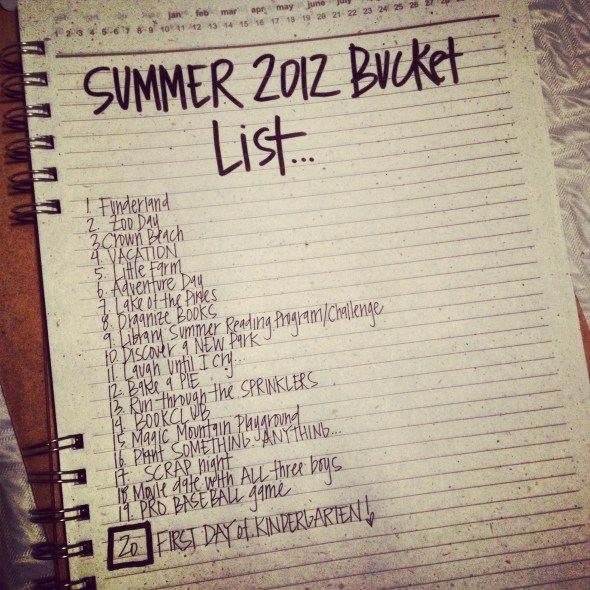 jan feb mar apr may june july
1 2 3 4 5 6 7 8 9 10 11 12 13 14 15 16 17 18 19 20 21 22 23 24 25 26 27 28
SUMMER 2012 BUCKET
List...
1. Funderland
2. Zoo Day
3. Crown Beach
4. VACATION
5. Little Farm
6. Adventure Day
7. Lake of the Pines
8. Organize BOOKS
9. Library Summer Reading Program/Challenge
10. Discover a NEW Park
11. Laugh Until I Cry...
12. Bake a PIE
13. Run through the SPRINKLERS
14. BOOKCLUB
15. Magic Mountain Playground
16. Plant SOMETHING. ANYTHING...
17. SCRAP night
18. Movie date with ALL three boys
19. PRO BASEBALL game
20 FIRST DAY of KINDERGARTEN!